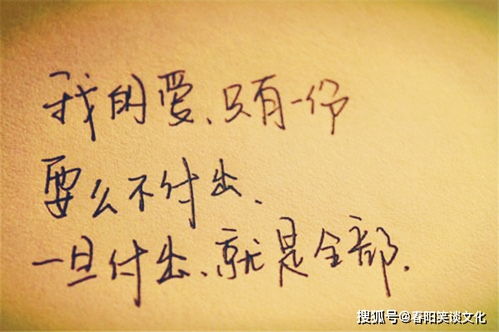 我的爱、只有一份
要么不付出、
一旦付出、就是全部.
搜狐号@春阳笑谈文化